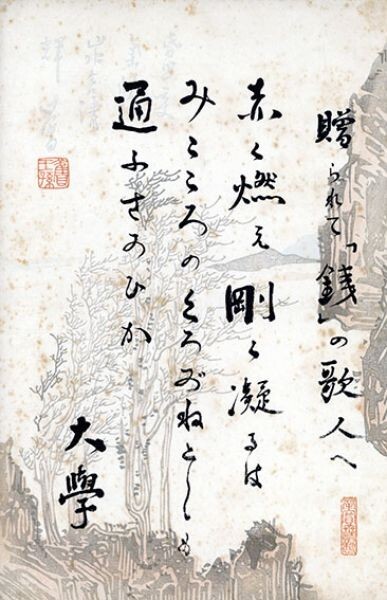 贈られて「銭」の歌人へ
赤く燃え剛く凝るは
みこころのくろがねとしも
通ふさのひか
大學